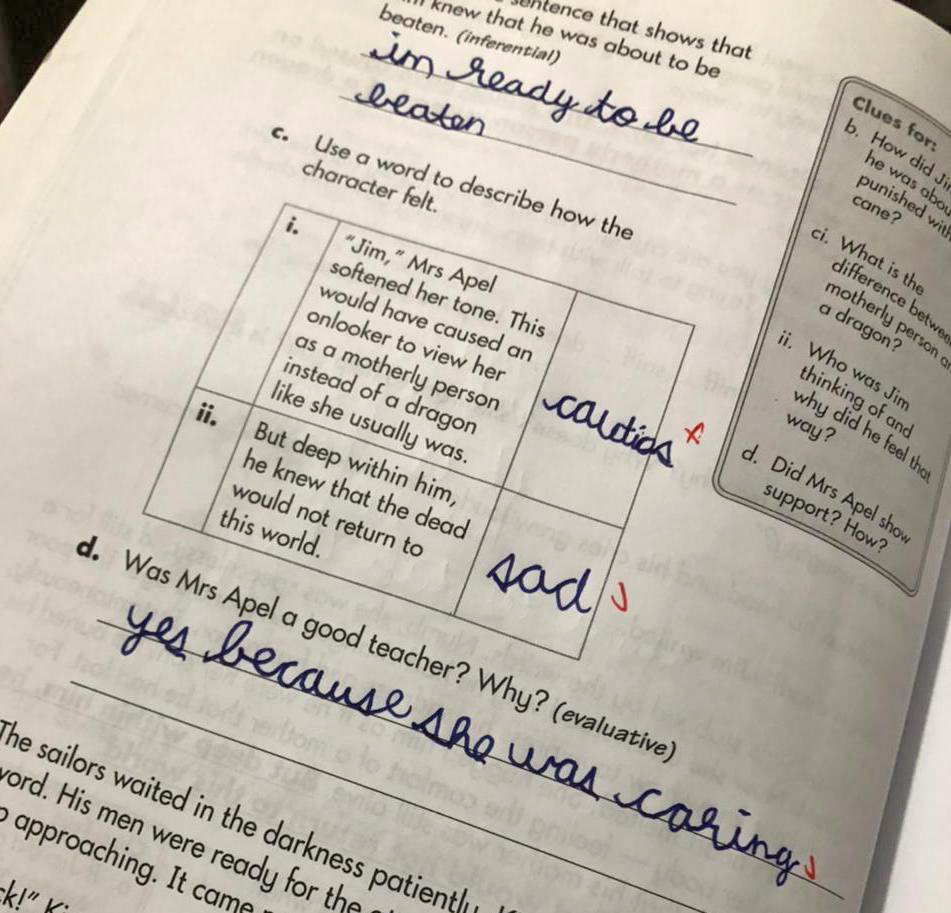 sentence that shows that
knew that he was about to be
beaten. (inferential)
im ready to be
beaten
c. Use a word to describe how the
character felt.
i. "Jim," Mrs Apel
softened her tone. This
would have caused an
onlooker to view her
as a motherly person
instead of a dragon
like she usually was.
ii. But deep within him,
he knew that the dead
would not return to
this world.
sad
d. Was Mrs Apel a good teacher? Why? (evaluative)
yes because she was caring
The sailors waited in the darkness patiently.
word. His men were ready for the
approaching. It came
Clues for:
b. How did
he was
punished with
cane?
ci. What is the
difference
motherly person
a dragon?
ii. Who was Jim
thinking of and
why did he feel that
way?
d. Did Mrs Apel show
support? How?